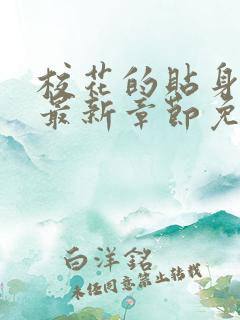 校花的贴身
最新章节免
白洋銘
未经同意禁止转载